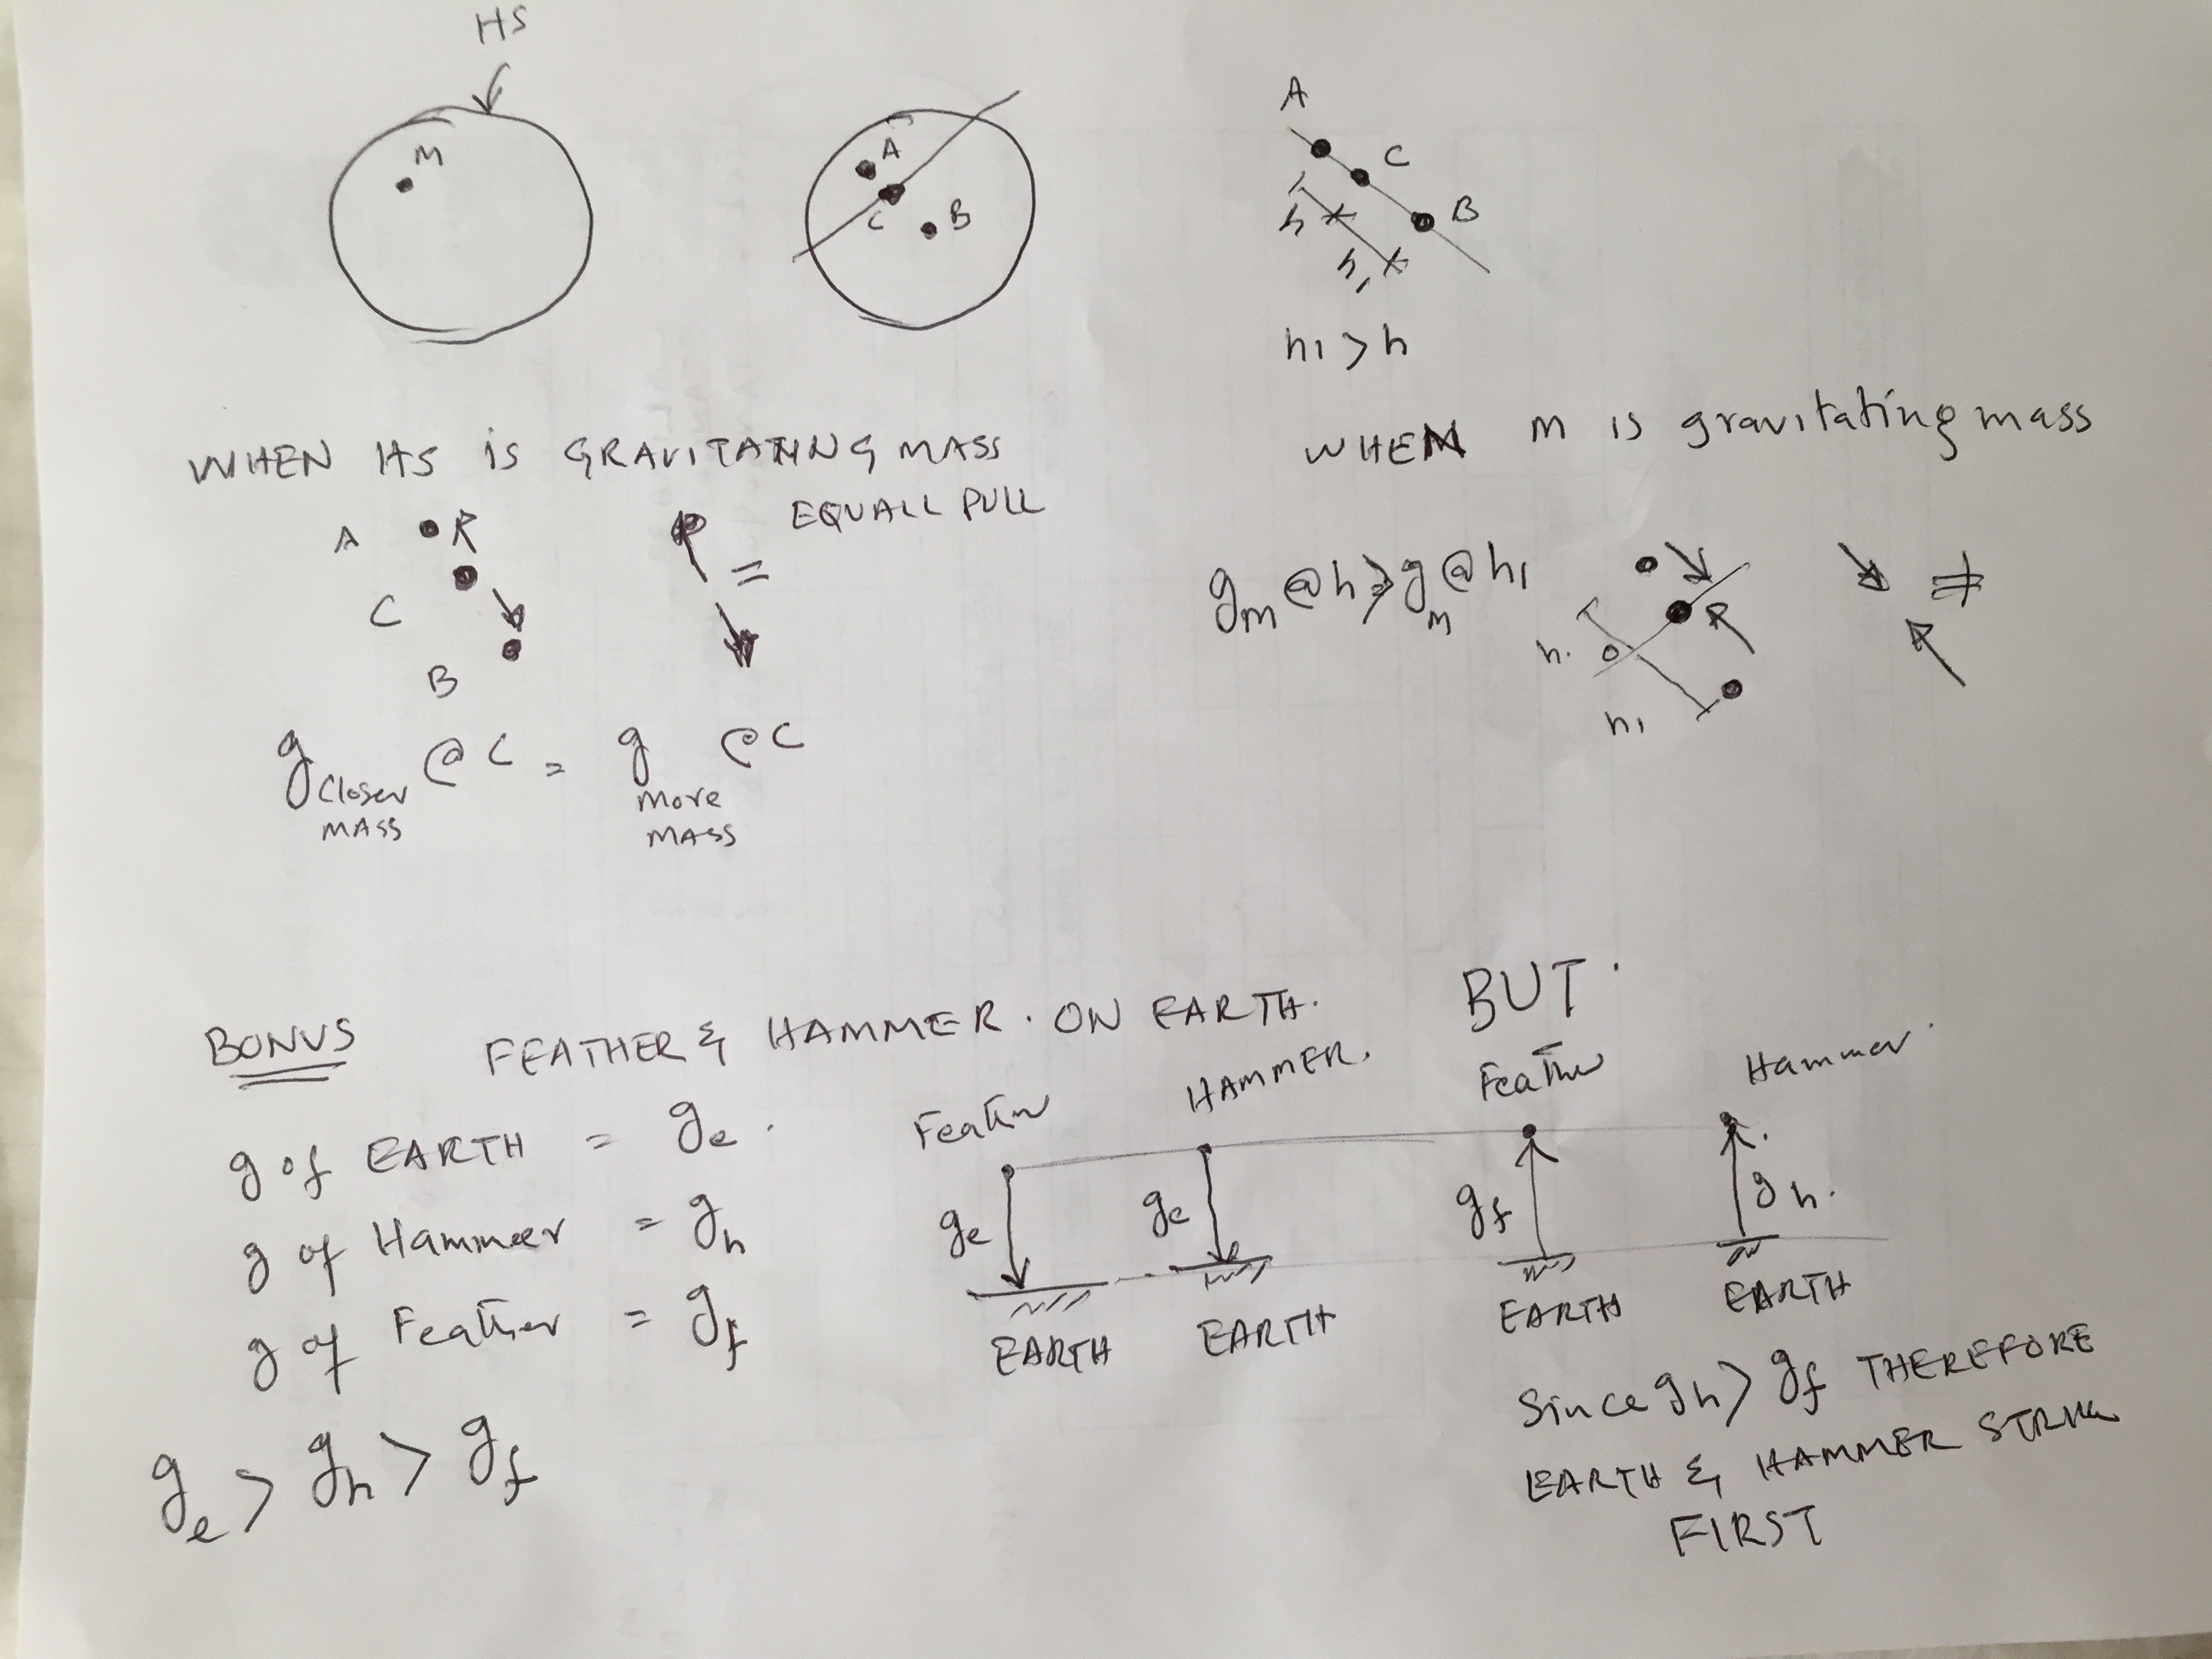 HS
M
A
C
B
A
C
B
h
h1
h1 > h
WHEN HS is GRAVITATING MASS
EQUALL PULL
A
C
B
=
g closer MASS @ C = g more MASS @ C
WHEN M is gravitating mass
gm @ h > gm @ h1
h
h1
≠
BONUS
FEATHER & HAMMER. ON EARTH.
BUT.
g of EARTH = ge.
g of Hammer = gh
g of Feather = gf
ge > gh > gf
Feather
HAMMER.
Feather
Hammer.
ge
ge
gf
gh.
EARTH
EARTH
EARTH
EARTH
Since gh > gf THEREFORE
EARTH & HAMMER STRIKE
FIRST